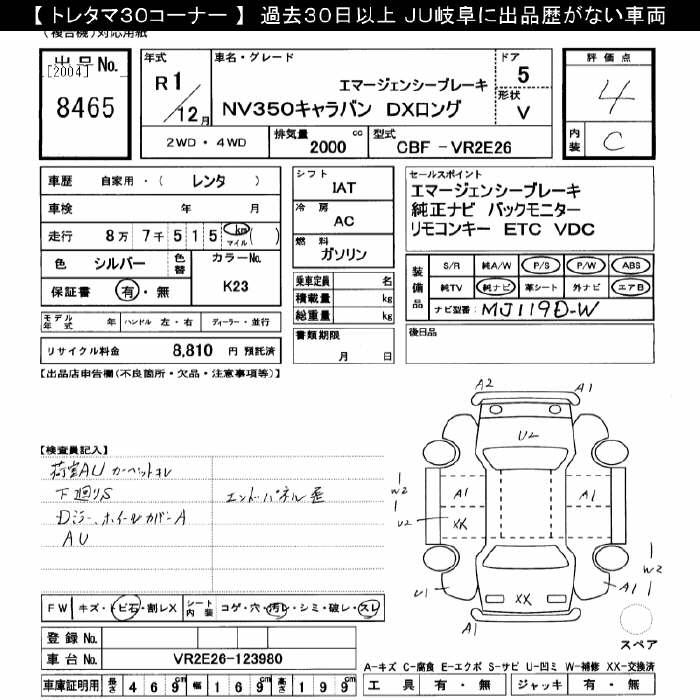 【 トレタマ30コーナー 】 過去30日以上 JU岐阜に出品歴がない車両
(複合機)対応用紙
出品No.
[2004]
8465
年式
R1
12月
車名・グレード
エマージェンシーブレーキ
NV350キャラバン DXロング
ドア
5
形状
V
2WD・4WD
排気量
2000 cc
型式
CBF -VR2E26
評価点
4
内装
C
車歴 自家用・( レンタ )
車検 年 月
走行 8万 7千 5 1 5 km マイル ( )
色 シルバー 色替 カラーNo.
保証書 有・無 K23
モデル年式 年 ハンドル 左・右 ディーラー・並行
リサイクル料金 8,810 円 預託済
シフト
IAT
冷房
AC
燃料
ガソリン
乗車定員 名
積載量 kg
総重量 kg
書類期限
月 日
セールスポイント
エマージェンシーブレーキ
純正ナビ バックモニター
リモコンキー ETC VDC
装備品
S/R 純A/W P/S P/W ABS
純TV 純ナビ 革シート 外ナビ エアB
ナビ型番: MJ119D-W
後日品
【出品店申告欄(不良箇所・欠品・注意事項等)】
【検査員記入】
荷室AU カーペットキレ
下廻りS
エンドパネル歪
Dミラー、ホイールカバーA
AU
FW キズ・トビ石・割レX シート内装 コゲ・穴・汚レ・シミ・破レ・スレ
登録 No.
車台 No. VR2E26-123980
車庫証明用 長さ 4 6 9 cm 幅 1 6 9 cm 高さ 1 9 9 cm
A2
A1
U2
W2
A1
A1
U2
XX
W2
U1
XX
A1
A1
スペア
A-キズ C-腐食 E-エクボ S-サビ U-凹ミ W-補修 XX-交換済
工具 有・無 ジャッキ 有・無